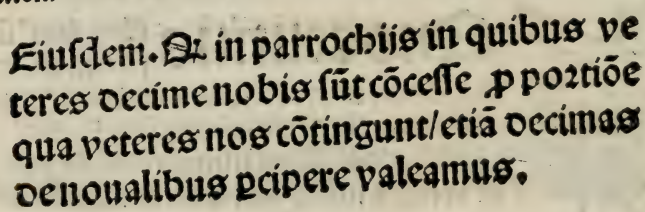 Eiuſdem. Qꝛ in parrochijs in quibus ve
teres decime nobis ſūt cōceſſe ꝓ poꝛtiōe
qua veteres nos cōtingunt/etiā decimas
de noualibus ꝑcipere valeamus.